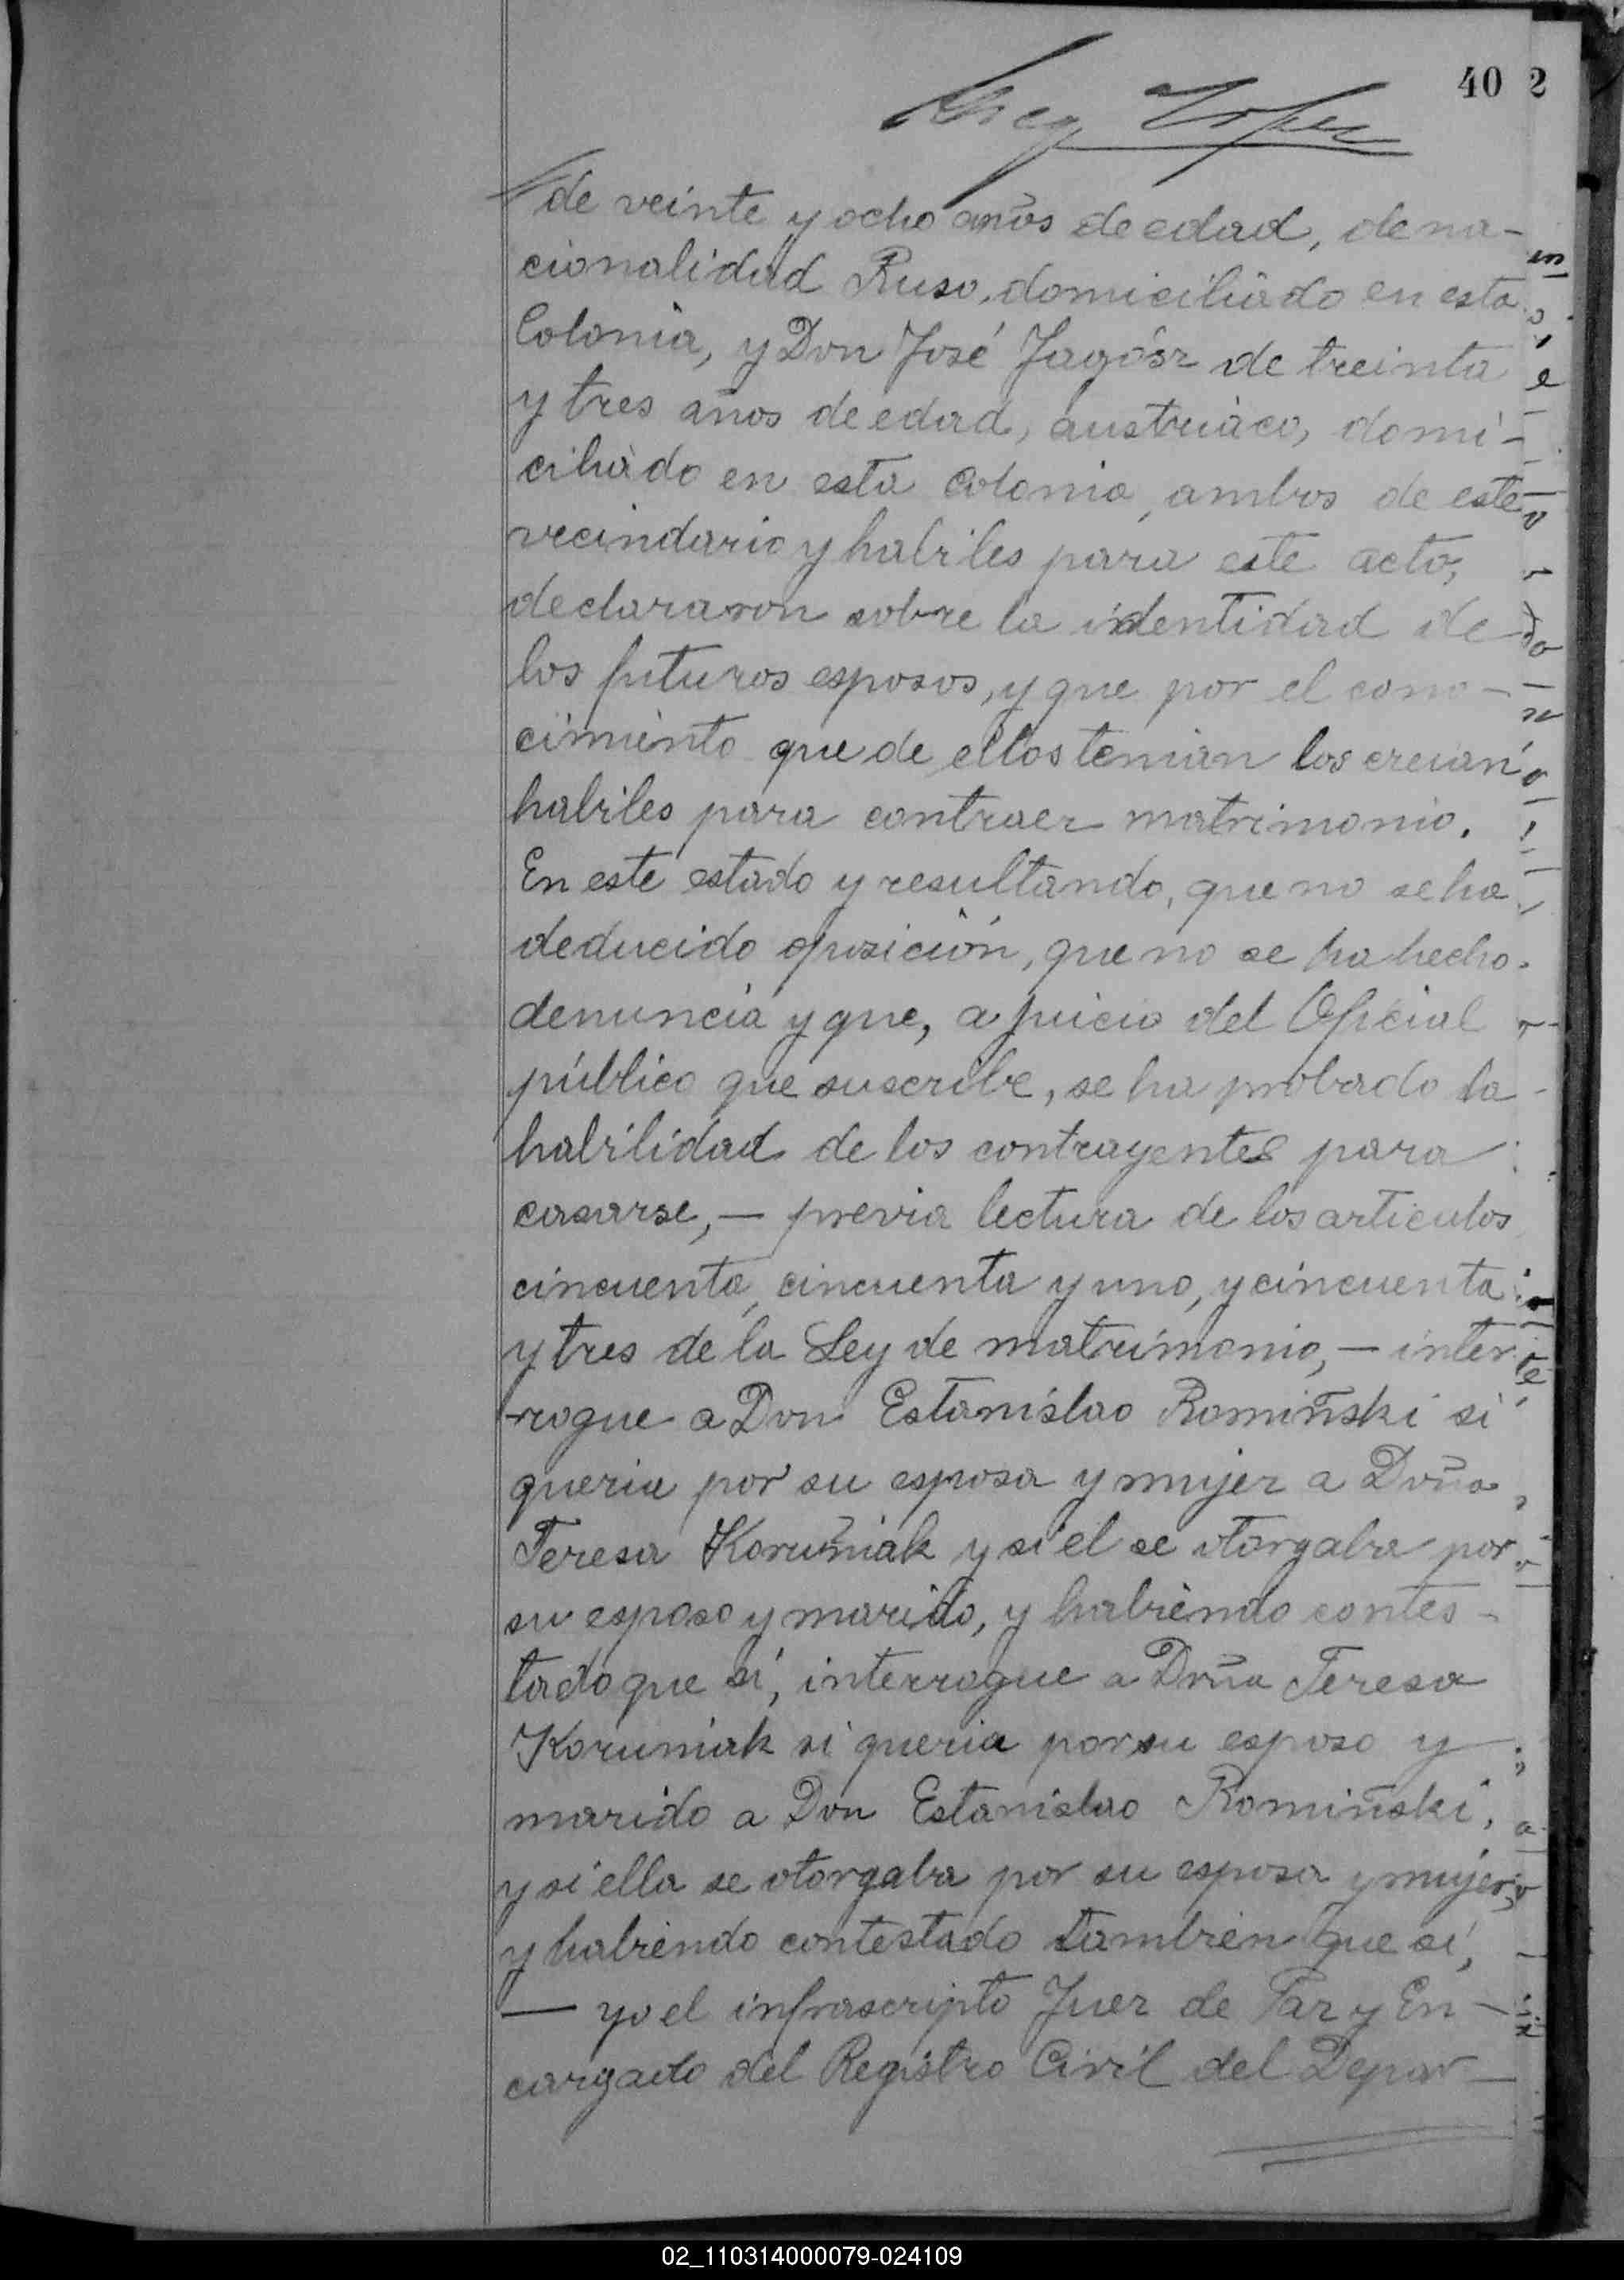 40 2
de veinte y ocho años de edad, de na-
cionalidad Ruso, domiciliado en esta
Colonia, y Don José Jagósz de treinta
y tres años de edad, austriaco, domi-
ciliado en esta Colonia, ambos de este
vecindario y habiles para este acto,
declararon sobre la identidad de
los futuros esposos, y que por el cono-
cimiento que de ellos tenian los creian
habiles para contraer matrimonio.
En este estado y resultando, que no se ha
deducido oposición, que no se ha hecho
denuncia y que, a juicio del Oficial
público que suscribe, se ha probado la
habilidad de los contrayentes para
casarse, — previa lectura de los articulos
cincuenta, cincuenta y uno, y cincuenta
y tres de la Ley de matrimonio, — inter-
rogue a Don Estanislao Romiñski si
queria por su esposa y mujer a Doña
Teresa Koruñiak y si el se otorgaba por
su esposo y marido, y habiendo contes-
tado que sí, interrogue a Doña Teresa
Koruniak si queria por su esposo y
marido a Don Estanislao Romiñski,
y si ella se otorgaba por su esposa y mujer,
y habiendo contestado tambien que sí,
— yo el infrascripto Juez de Paz y En-
cargado del Registro Civil del Depar-
02_110314000079-024109